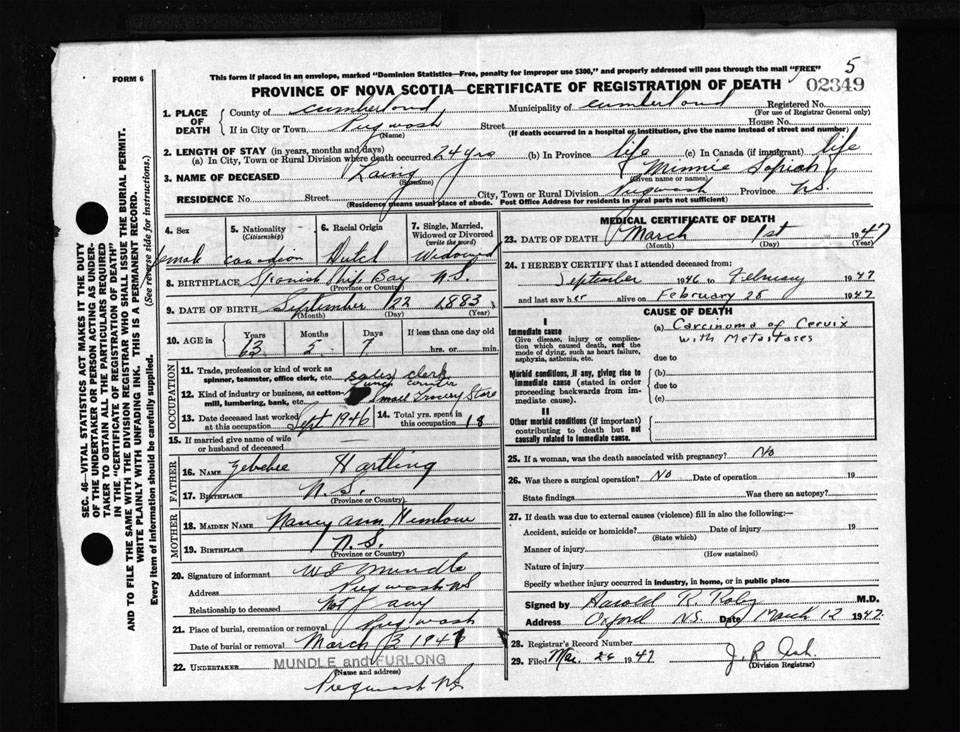 5
FORM 6
This form if placed in an envelope, marked "Dominion Statistics—Free, penalty for improper use $300," and properly addressed will pass through the mail "FREE"
PROVINCE OF NOVA SCOTIA—CERTIFICATE OF REGISTRATION OF DEATH
02349
SEC. 46–VITAL STATISTICS ACT MAKES IT THE DUTY
OF THE UNDERTAKER OR PERSON ACTING AS UNDER-
TAKER TO OBTAIN ALL THE PARTICULARS REQUIRED
IN THE "CERTIFICATE OF REGISTRATION OF DEATH"
AND TO FILE THE SAME WITH THE DIVISION REGISTRAR WHO SHALL ISSUE THE BURIAL PERMIT.
WRITE PLAINLY WITH UNFADING INK. THIS IS A PERMANENT RECORD.
Every item of information should be carefully supplied. (See reverse side for instructions.)
1. PLACE OF DEATH County of Cumberland Municipality of Cumberland Registered No.
(For use of Registrar General only)
If in City or Town Pugwash Street House No.
(Name) (If death occurred in a hospital or institution, give the name instead of street and number)
2. LENGTH OF STAY (in years, months and days)
(a) In City, Town or Rural Division where death occurred 24 yrs (b) In Province life (c) In Canada (if immigrant) life
3. NAME OF DECEASED Laing Minnie
(Surname) (Given name or names)
RESIDENCE No. Street City, Town or Rural Division Pugwash Province N.S.
(Residence means usual place of abode. Post Office Address for residents in rural parts not sufficient)
4. Sex female
5. Nationality (Citizenship) Canadian
6. Racial Origin Dutch
7. Single, Married, Widowed or Divorced (write the word) Widowed
8. BIRTHPLACE Spanish Ship Bay N.S.
(Province or Country)
9. DATE OF BIRTH September 22 1883
(Month) (Day) (Year)
10. AGE in Years 63 Months 5 Days 7 If less than one day old hrs. or min.
OCCUPATION
11. Trade, profession or kind of work as spinner, teamster, office clerk, etc. sales clerk
lunch counter
12. Kind of industry or business, as cotton-mill, lumbering, bank, etc. small Grocery Store
13. Date deceased last worked at this occupation Sept 1946 14. Total yrs. spent in this occupation 18
15. If married give name of wife or husband of deceased
FATHER
16. Name Zebedee Hartling
17. Birthplace N.S.
(Province or Country)
MOTHER
18. MAIDEN NAME Nancy Ann
19. BIRTHPLACE N.S.
(Province or Country)
20. Signature of informant Mundle
Address Pugwash NS
Relationship to deceased Not any
21. Place of burial, cremation or removal Pugwash
Date of burial or removal March 3 1947
22. UNDERTAKER MUNDLE and FURLONG
(Name and address)
Pugwash NS
MEDICAL CERTIFICATE OF DEATH
23. DATE OF DEATH March 1st 1947
(Month) (Day) (Year)
24. I HEREBY CERTIFY that I attended deceased from
September 1946 to February 1947
and last saw her alive on February 25 1947
CAUSE OF DEATH
I
Immediate cause
Give disease, injury or complication which caused death, not the mode of dying, such as heart failure, asphyxia, asthenia, etc.
(a) Carcinoma of Cervix
with Metastases
due to
Morbid conditions, if any, giving rise to immediate cause (stated in order proceeding backwards from immediate cause).
(b)
due to
(c)
II
Other morbid conditions (if important) contributing to death but not causally related to immediate cause.
25. If a woman, was the death associated with pregnancy? No
26. Was there a surgical operation? No Date of operation 19
State findings Was there an autopsy?
27. If death was due to external causes (violence) fill in also the following:—
Accident, suicide or homicide? Date of injury 19
(State which)
Manner of injury
(How sustained)
Nature of injury
Specify whether injury occurred in industry, in home, or in public place
Signed by Harold R. Roby M.D.
Address Oxford N.S. Date March 12 1947
28. Registrar's Record Number
29. Filed Mar. 26 1947 J. R. Ash.
(Division Registrar)